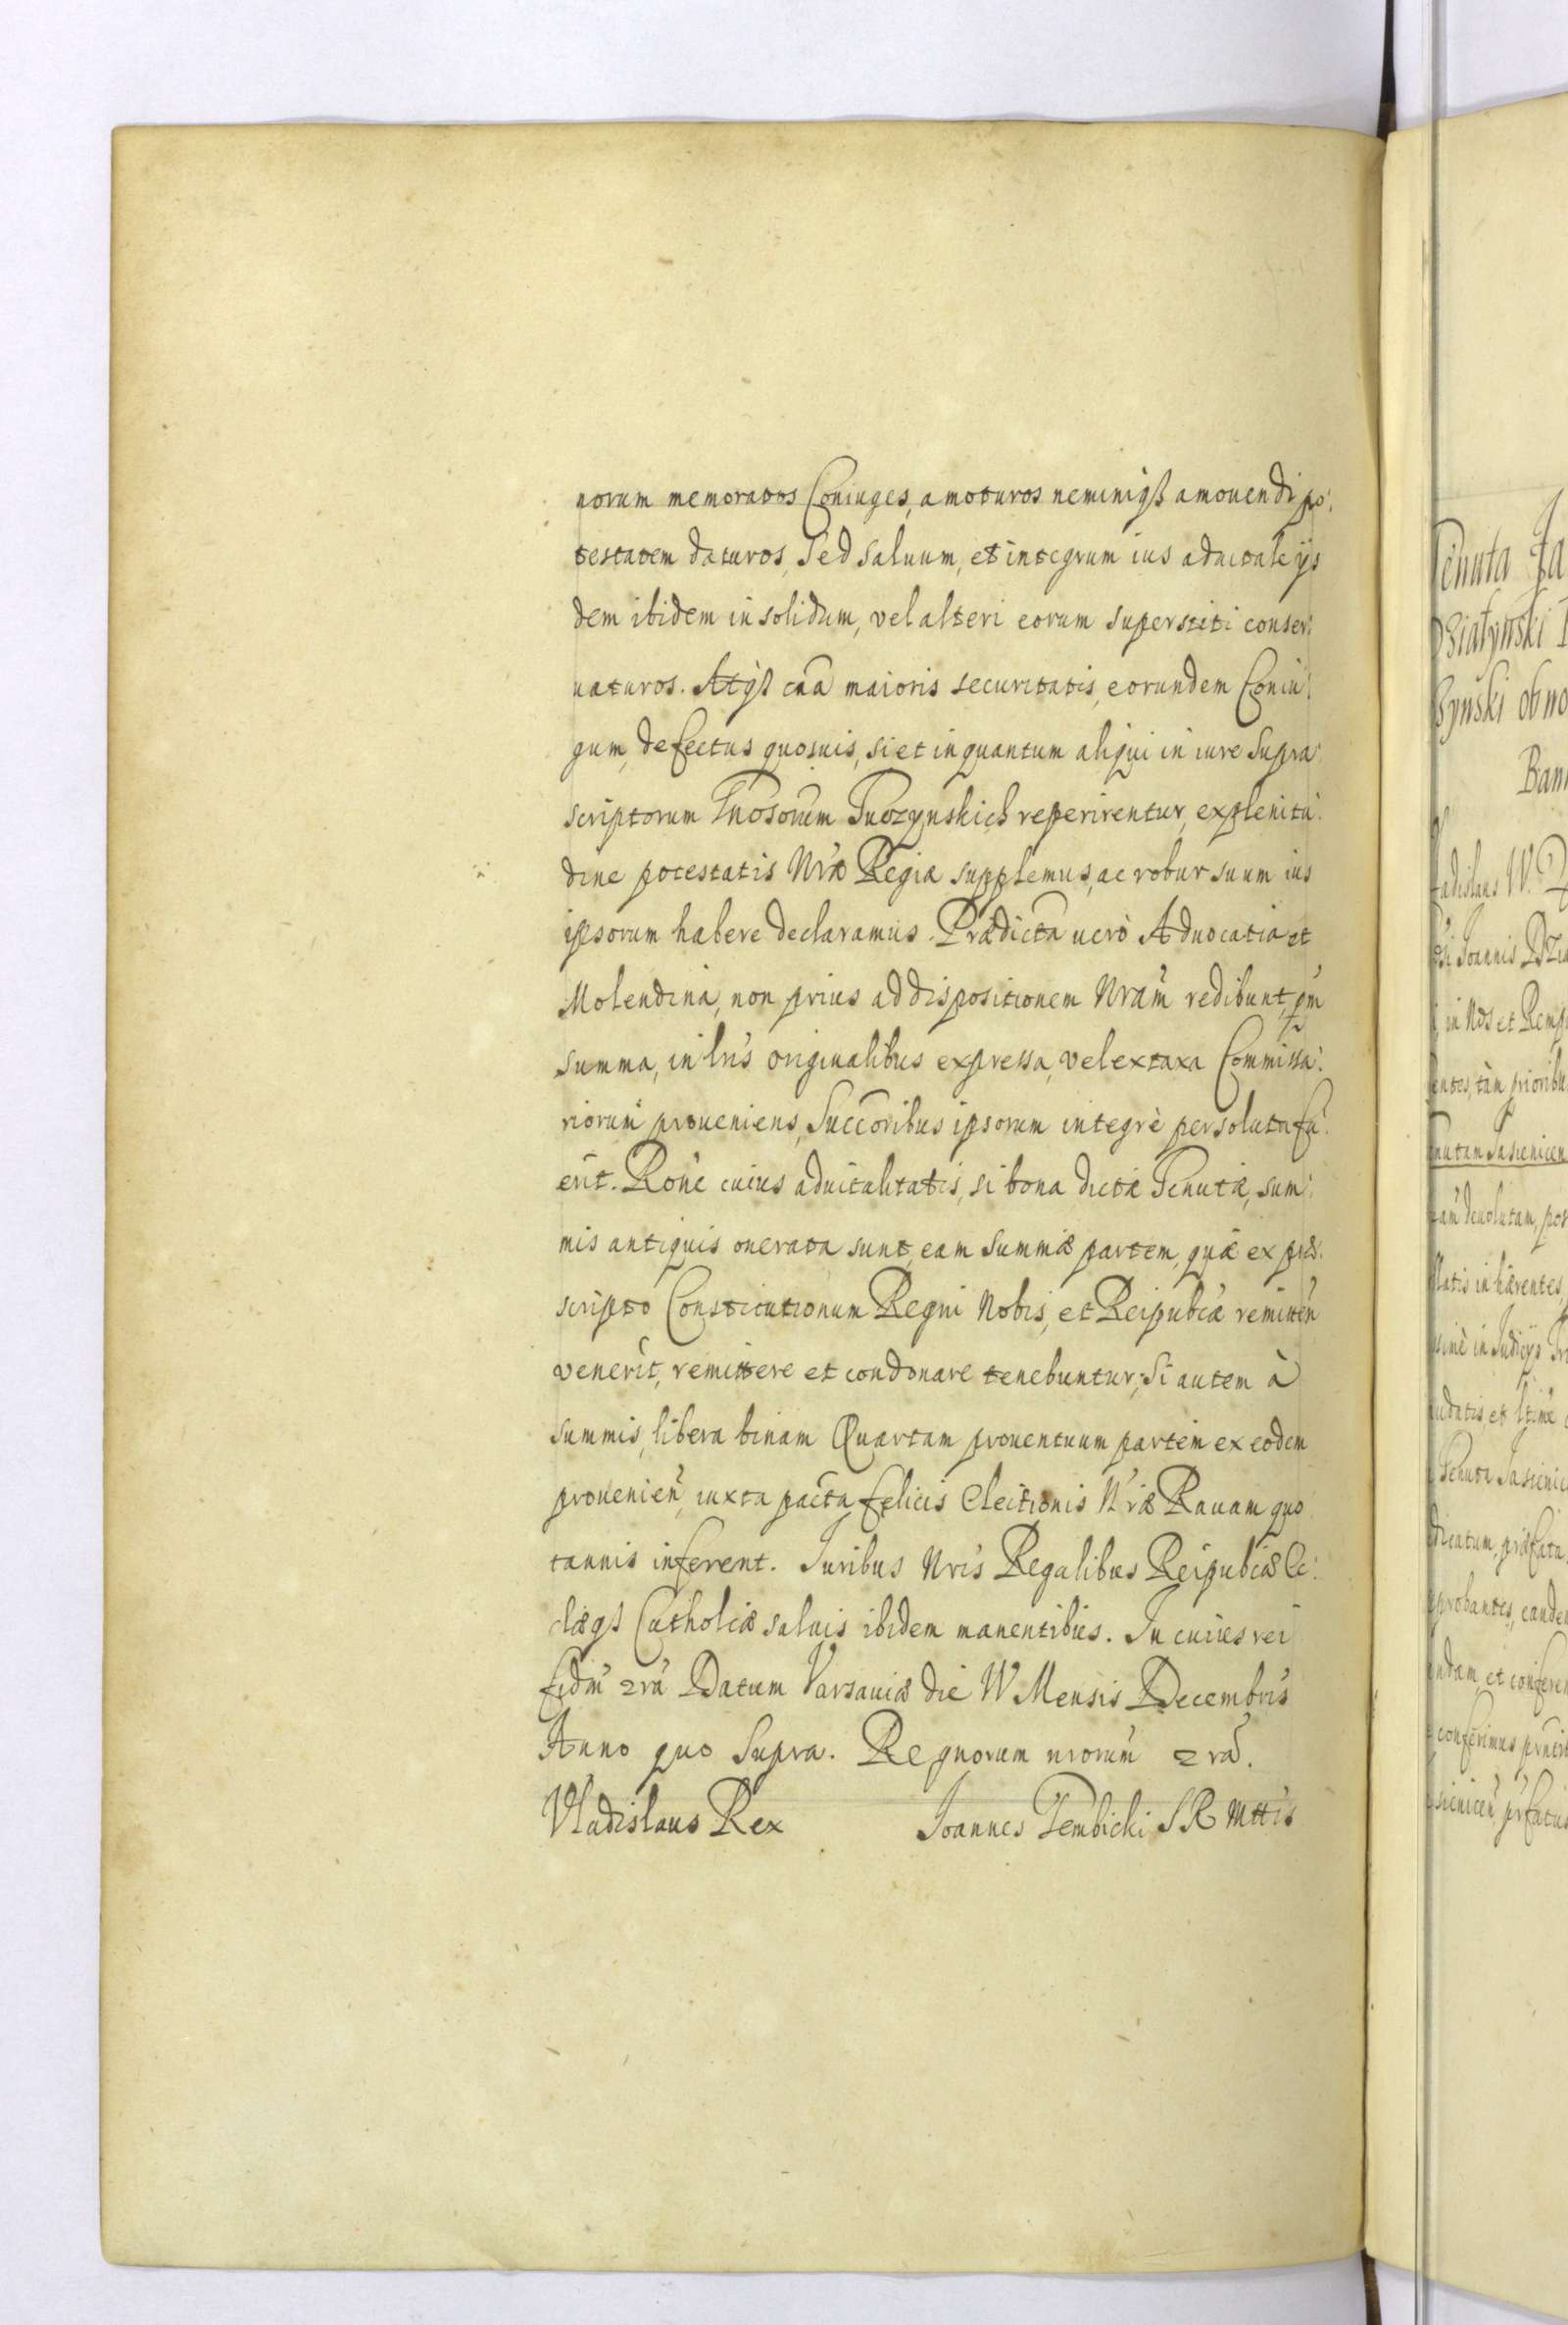 norum memoratos Coniuges, amoturos neminiqȝ amouendi po:
testatem daturos, Sed saluum, et integrum ius aduitale ijs
dem ibidem in solidum, vel alteri eorum superstiti conser:
uaturos. Atqȝ cãa maioris securitatis, eorundem Coniu:
gum, defectus quosuis, si et inquantum aliqui in iure supra:
scriptorum Gnosorum Tuczynskich reperirentur, explenitu:
dine potestatis Nræ Regiæ supplemus, ac robur suum ius
ipsorum habere declaramus. Prædicta uerò Aduocatia et
Molendina, non prius ad dispositionem Nram redibunt, qm
summa, in lris originalibus expressa, vel ex taxa Commissa:
riorum proueniens, Succoribus ipsorum integrè persoluta fu:
erit. Rone cuius aduitalitatis, si bona dictæ Tenutæ, sum:
mis antiquis onerata sunt, eam summæ partem, quæ ex præ:
scripto Constitutionum Regni Nobis, et Reipubcæ remitten
venerit, remittere et condonare tenebuntur, Si autem à
summis, libera binam Quartam prouentuum partem ex eodem
prouenien, iuxta pacta felicis Electionis Nræ Rauam quo
tannis inferent. Iuribus Nris Regalibus Reipubcæ Ec:
clæqȝ Catholicæ saluis ibidem manentibus. In cuius rei
fidm 2ra Datum Varsauiæ die W Mensis Decembris
Anno quo supra. Regnorum nrorum 2ra.
Vladislaus Rex Joannes Gembicki S R Mttis
Tenuta Ja
Działynski
Bynski ob no
Bann
ladislaus W. D
Joannis Dzia
in Nos et Remp
entes, tàm prioribu
nutam Jasienicen
tam deuolutam, pos
latis inhærentes,
in Judicijs Tr
udatis, et ltime
Tenuta Jasienic
dicatum, præfata
probantes, eande
ndam, et conferen
conferimus prnti
sienicen, præfatus